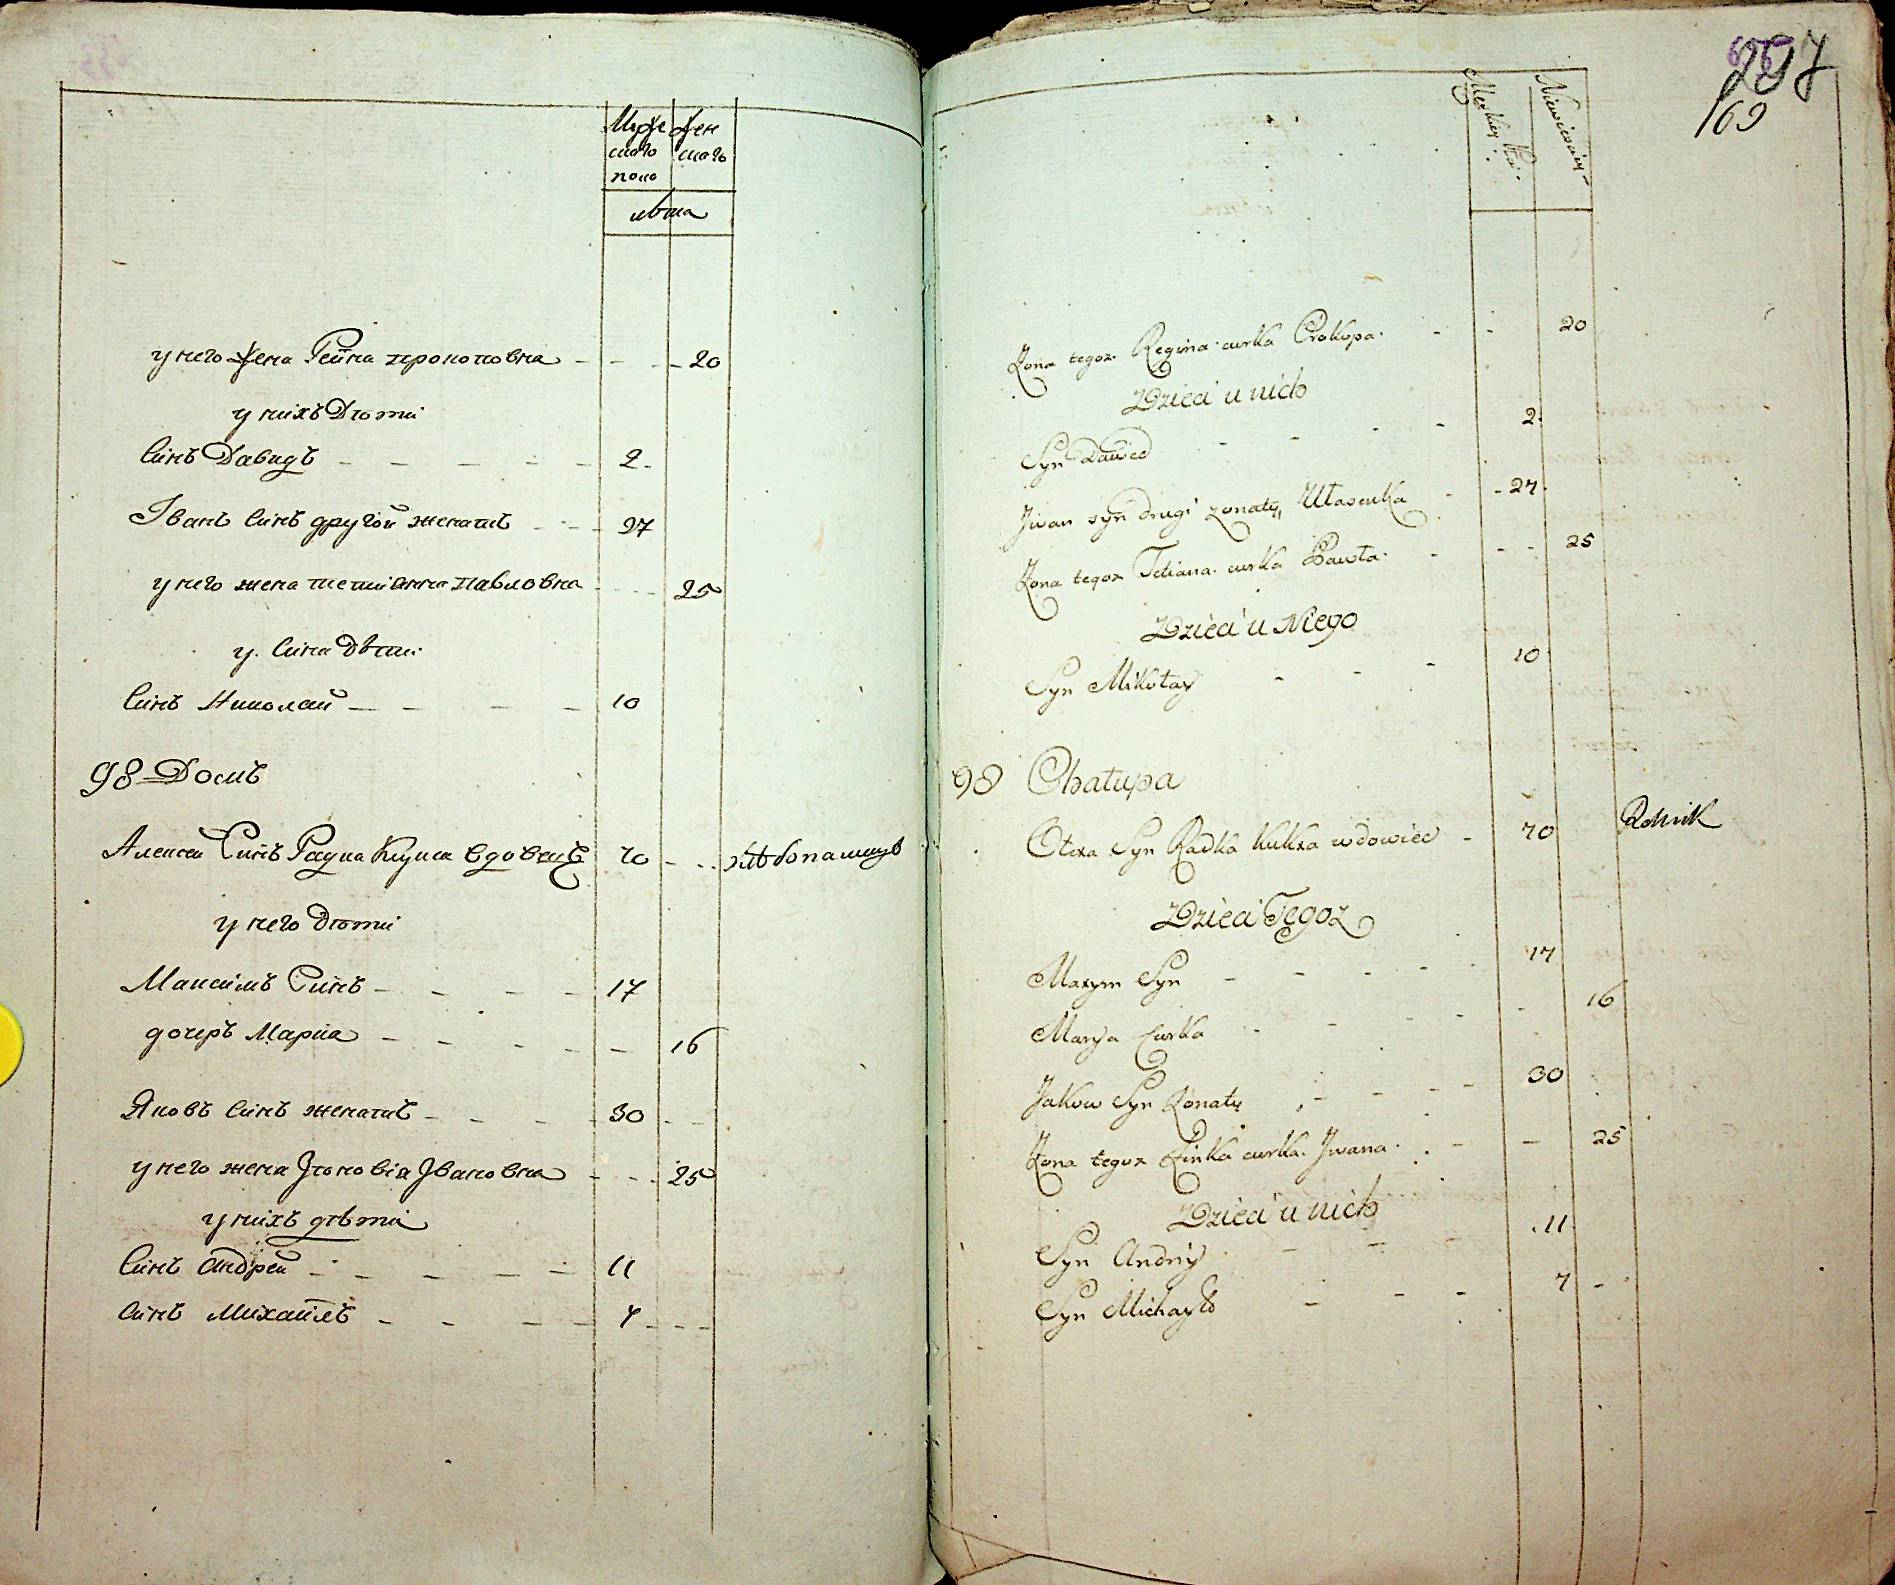 Муже
скаго
полу
жен
скаго
лѣта
у него жена Реина прокоповна - - - 20
у нихъ Дѣти
Синъ Давидъ - - - - - 2
Іванъ Синъ другой женатъ - - - 27
у него жена тетиянна павловна - - - 25
у Сина Дѣти
Синъ Николай - - - - 10
98 Домъ
Алексей Синъ Радка Кукса вдовецъ 70 - - хлѣбопашецъ
у него Дѣти
Максимъ Синъ - - - - 17
дочеръ Мариа - - - - - - 16
Яковъ Синъ женатъ - - - - 30 - -
у него жена Зѣновіа Івановна - - - 25
у нихъ дѣти
Синъ Андрей - - - - - 11
Синъ Михаилъ - - - - 7 - - -
297
169
Męzkiey
Niewieściey
Zona tegoz Regina curka Prokopa - - 20
Dzieci u nich
Syn Dawid - - - - 2
Jwan syn drugi zonaty, Własenka - - 27
Zona tegoz Tetiana curka Pawła - - - 25
Dzieci u Niego
Syn Mikołay - - - 10
98 Chałupa
Olexa Syn Radka Kuksa wdowiec - 70 Rolnik
Dzieci Tegoz
Maxym Syn - - - - - 17
Marya Curka - - - - - 16
Jakow Syn Zonaty - - - - 30
Zona tegoz Zinka curka Jwana - - 25
Dzieci u nich
Syn Andriy - - - 11
Syn Michayło - - - 7 -